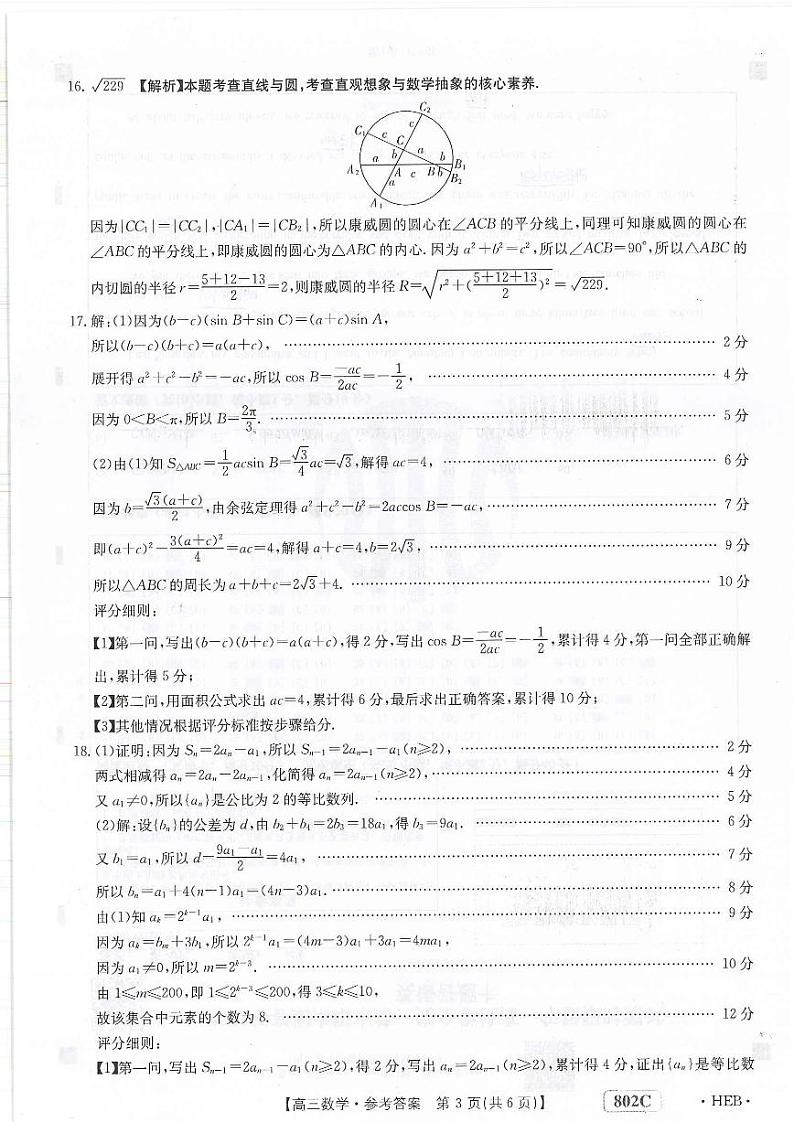 16. √229 【解析】本题考查直线与圆,考查直观想象与数学抽象的核心素养.
C₂
C₁ c c
C
a b a b
A₂ A c B b B₁
a B₂
A₁
因为|CC₁|=|CC₂|,|CA₁|=|CB₂|,所以康威圆的圆心在∠ACB的平分线上,同理可知康威圆的圆心在
∠ABC的平分线上,即康威圆的圆心为△ABC的内心.因为a²+b²=c²,所以∠ACB=90°,所以△ABC的
内切圆的半径r=(5+12-13)/2=2,则康威圆的半径R=√(r²+((5+12+13)/2)²)=√229.
17. 解:(1)因为(b-c)(sin B+sin C)=(a+c)sin A,
所以(b-c)(b+c)=a(a+c), …… 2分
展开得a²+c²-b²=-ac,所以cos B=-ac/2ac=-1/2, …… 4分
因为0<B<π,所以B=2π/3. …… 5分
(2)由(1)知S△ABC=1/2acsin B=√3/4ac=√3,解得ac=4, …… 6分
因为b=√3(a+c)/2,由余弦定理得a²+c²-b²=2accos B=-ac, …… 7分
即(a+c)²-3(a+c)²/4=ac=4,解得a+c=4,b=2√3, …… 9分
所以△ABC的周长为a+b+c=2√3+4. …… 10分
评分细则:
【1】第一问,写出(b-c)(b+c)=a(a+c),得2分,写出cos B=-ac/2ac=-1/2,累计得4分,第一问全部正确解
出,累计得5分;
【2】第二问,用面积公式求出ac=4,累计得6分,最后求出正确答案,累计得10分;
【3】其他情况根据评分标准按步骤给分.
18. (1)证明:因为Sₙ=2aₙ-a₁,所以Sₙ₋₁=2aₙ₋₁-a₁(n≥2), …… 2分
两式相减得aₙ=2aₙ-2aₙ₋₁,化简得aₙ=2aₙ₋₁(n≥2), …… 4分
又a₁≠0,所以{aₙ}是公比为2的等比数列. …… 5分
(2)解:设{bₙ}的公差为d,由b₂+b₄=2b₃=18a₁,得b₃=9a₁. …… 6分
又b₁=a₁,所以d=(9a₁-a₁)/2=4a₁, …… 7分
所以bₙ=a₁+4(n-1)a₁=(4n-3)a₁. …… 8分
由(1)知aₖ=2ᵏ⁻¹a₁, …… 9分
因为aₖ=bₘ+3b₁,所以2ᵏ⁻¹a₁=(4m-3)a₁+3a₁=4ma₁,
因为a₁≠0,所以m=2ᵏ⁻³. …… 10分
由1≤m≤200,即1≤2ᵏ⁻³≤200,得3≤k≤10,
故该集合中元素的个数为8. …… 12分
评分细则:
【1】第一问,写出Sₙ₋₁=2aₙ₋₁-a₁(n≥2),得2分,写出aₙ=2aₙ₋₁(n≥2),累计得4分,证出{aₙ}是等比数
【高三数学·参考答案 第3页(共6页)】 802C ·HEB·